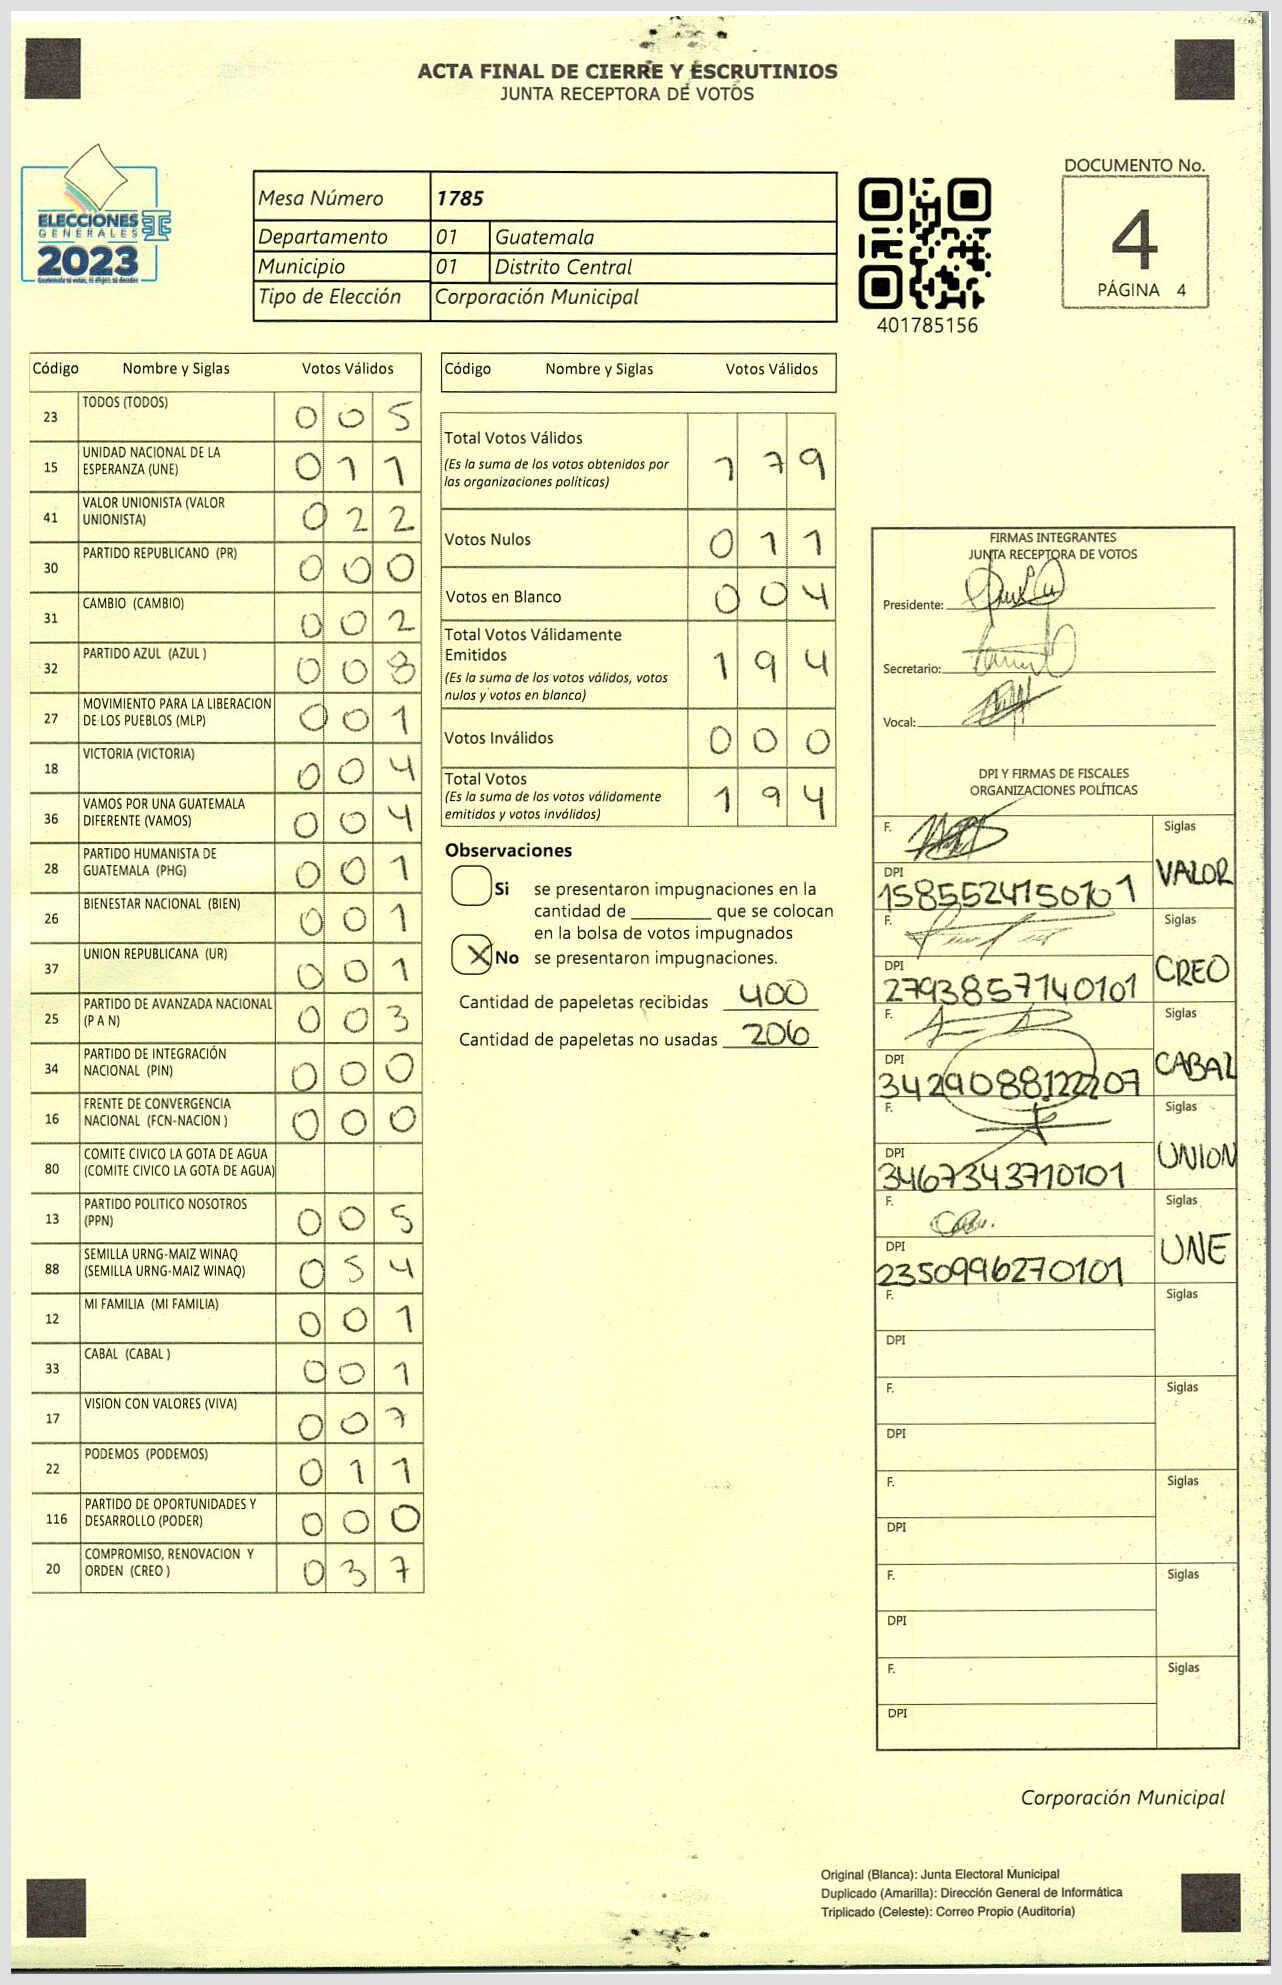 ACTA FINAL DE CIERRE Y ESCRUTINIOS
JUNTA RECEPTORA DE VOTOS
ELECCIONES
GENERALES
2023
Mesa Número 1785
Departamento 01 Guatemala
Municipio 01 Distrito Central
Tipo de Elección Corporación Municipal
401785156
DOCUMENTO No.
4
PÁGINA 4
Código Nombre y Siglas Votos Válidos
23 TODOS (TODOS) 0 0 5
15 UNIDAD NACIONAL DE LA
ESPERANZA (UNE) 0 1 1
41 VALOR UNIONISTA (VALOR
UNIONISTA) 0 2 2
30 PARTIDO REPUBLICANO (PR) 0 0 0
31 CAMBIO (CAMBIO) 0 0 2
32 PARTIDO AZUL (AZUL ) 0 0 8
27 MOVIMIENTO PARA LA LIBERACION
DE LOS PUEBLOS (MLP) 0 0 1
18 VICTORIA (VICTORIA) 0 0 4
36 VAMOS POR UNA GUATEMALA
DIFERENTE (VAMOS) 0 0 4
28 PARTIDO HUMANISTA DE
GUATEMALA (PHG) 0 0 1
26 BIENESTAR NACIONAL (BIEN) 0 0 1
37 UNION REPUBLICANA (UR) 0 0 1
25 PARTIDO DE AVANZADA NACIONAL
(P A N) 0 0 3
34 PARTIDO DE INTEGRACIÓN
NACIONAL (PIN) 0 0 0
16 FRENTE DE CONVERGENCIA
NACIONAL (FCN-NACION ) 0 0 0
80 COMITE CIVICO LA GOTA DE AGUA
(COMITE CIVICO LA GOTA DE AGUA)
13 PARTIDO POLITICO NOSOTROS
(PPN) 0 0 5
88 SEMILLA URNG-MAIZ WINAQ
(SEMILLA URNG-MAIZ WINAQ) 0 5 4
12 MI FAMILIA (MI FAMILIA) 0 0 1
33 CABAL (CABAL ) 0 0 1
17 VISION CON VALORES (VIVA) 0 0 7
22 PODEMOS (PODEMOS) 0 1 1
116 PARTIDO DE OPORTUNIDADES Y
DESARROLLO (PODER) 0 0 0
20 COMPROMISO, RENOVACION Y
ORDEN (CREO ) 0 3 7
Código Nombre y Siglas Votos Válidos
Total Votos Válidos 1 7 9
(Es la suma de los votos obtenidos por
las organizaciones políticas)
Votos Nulos 0 1 1
Votos en Blanco 0 0 4
Total Votos Válidamente
Emitidos 1 9 4
(Es la suma de los votos válidos, votos
nulos y votos en blanco)
Votos Inválidos 0 0 0
Total Votos 1 9 4
(Es la suma de los votos válidamente
emitidos y votos inválidos)
Observaciones
Si se presentaron impugnaciones en la
cantidad de ________ que se colocan
en la bolsa de votos impugnados
X No se presentaron impugnaciones.
Cantidad de papeletas recibidas 400
Cantidad de papeletas no usadas 206
FIRMAS INTEGRANTES
JUNTA RECEPTORA DE VOTOS
Presidente:
Secretario:
Vocal:
DPI Y FIRMAS DE FISCALES
ORGANIZACIONES POLÍTICAS
F. Siglas
DPI VALOR
1585524150101
F. Siglas
DPI CREO
2793857140101
F. Siglas
DPI CABAL
3429088122207
F. Siglas
DPI UNION
3467343710101
F. Siglas
DPI UNE
2350996270101
F. Siglas
DPI
F. Siglas
DPI
F. Siglas
DPI
F. Siglas
DPI
F. Siglas
DPI
Corporación Municipal
Original (Blanca): Junta Electoral Municipal
Duplicado (Amarilla): Dirección General de Informática
Triplicado (Celeste): Correo Propio (Auditoría)